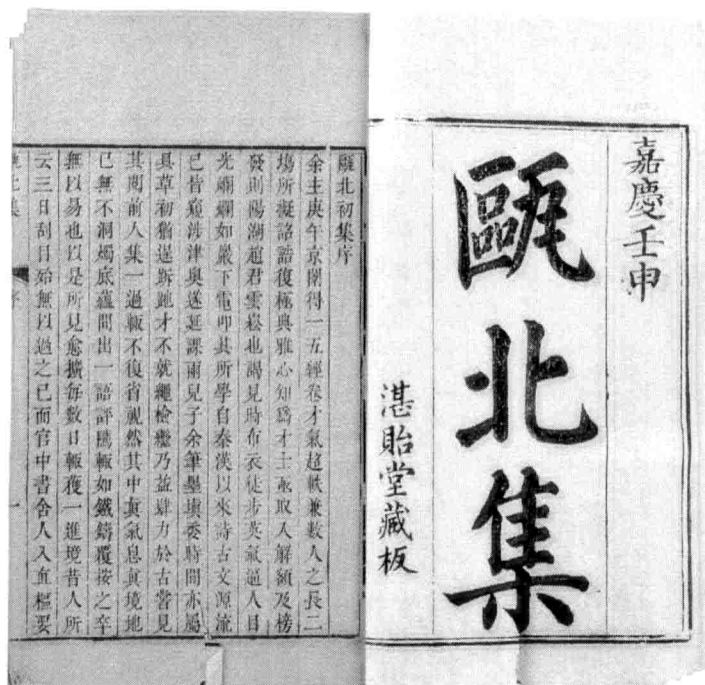 嘉慶壬申
甌北集
湛貽堂藏板
甌北初集序
余主庚午京闈得一五經卷才氣超軼兼數人之長二
塲所擬詔誥復極典雅心知爲才士亟取入解額及榜
發則陽湖趙君雲崧也謁見時布衣徒步英氣逼人目
光爛爛如巖下電叩其所學自秦漢以來詩古文源流
已皆窺涉津奧遂延課兩兒子余筆墨塡委時間亦屬
具草初猶逞跅跑才不就繩檢繼乃益肆力於古嘗見
其閱前人集一過輒不復省視然其中眞氣息眞境地
已無不洞燭底蘊間出一語評騭輒如鐵鑄覆按之卒
無以易也以是所見愈擴每數日輒獲一進境昔人所
云三日刮目殆無以過之已而官中書舍人入直樞要
北集
序
一